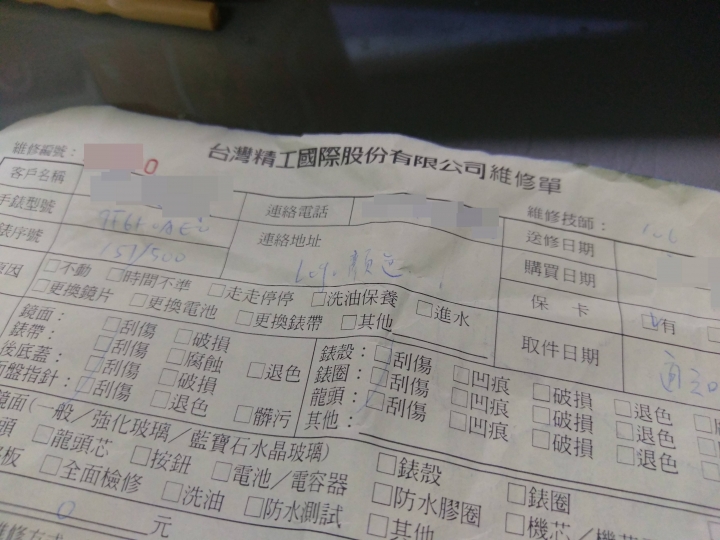 台灣精工國際股份有限公司維修單
維修編號： 0
維修技師：
客戶名稱 連絡電話 送修日期
手錶型號 連絡地址 購買日期
錶序號 151/500 保 卡 □有
原因 □不動 □時間不準 □走走停停 □洗油保養 □進水 取件日期
□更換鏡片 □更換電池 □更換錶帶 □其他
鏡面： □刮傷 □破損
錶帶： □刮傷 □腐蝕 □退色
後底蓋： □刮傷 □破損
盤指針： □刮傷 □退色 □髒污
錶殼： □刮傷 □凹痕 □破損 □退色
錶圈： □刮傷 □凹痕 □破損 □退色
龍頭： □刮傷 □凹痕 □破損 □退色
其他：
鏡面(一般／強化玻璃／藍寶石水晶玻璃)
頭 □龍頭芯 □按鈕 □電池／電容器 □錶殼 □錶圈
板 □全面檢修 □洗油 □防水測試 □防水膠圈 □機芯／機芯
0 元 □其他
維修方式